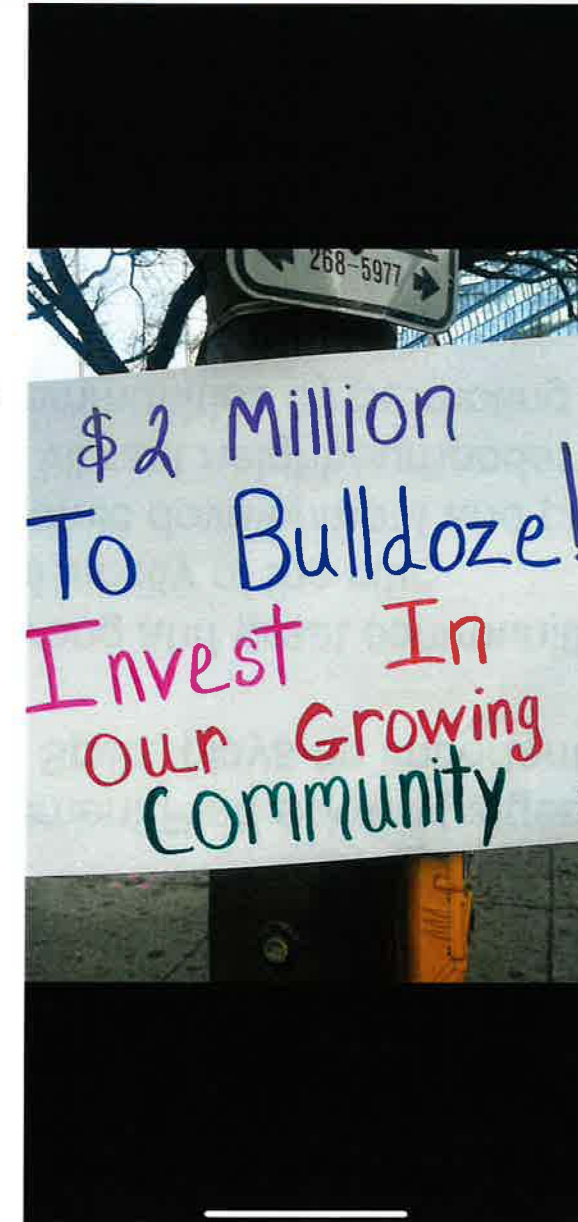 268-5977
$2 Million
To Bulldoze!
Invest In
our Growing
Community